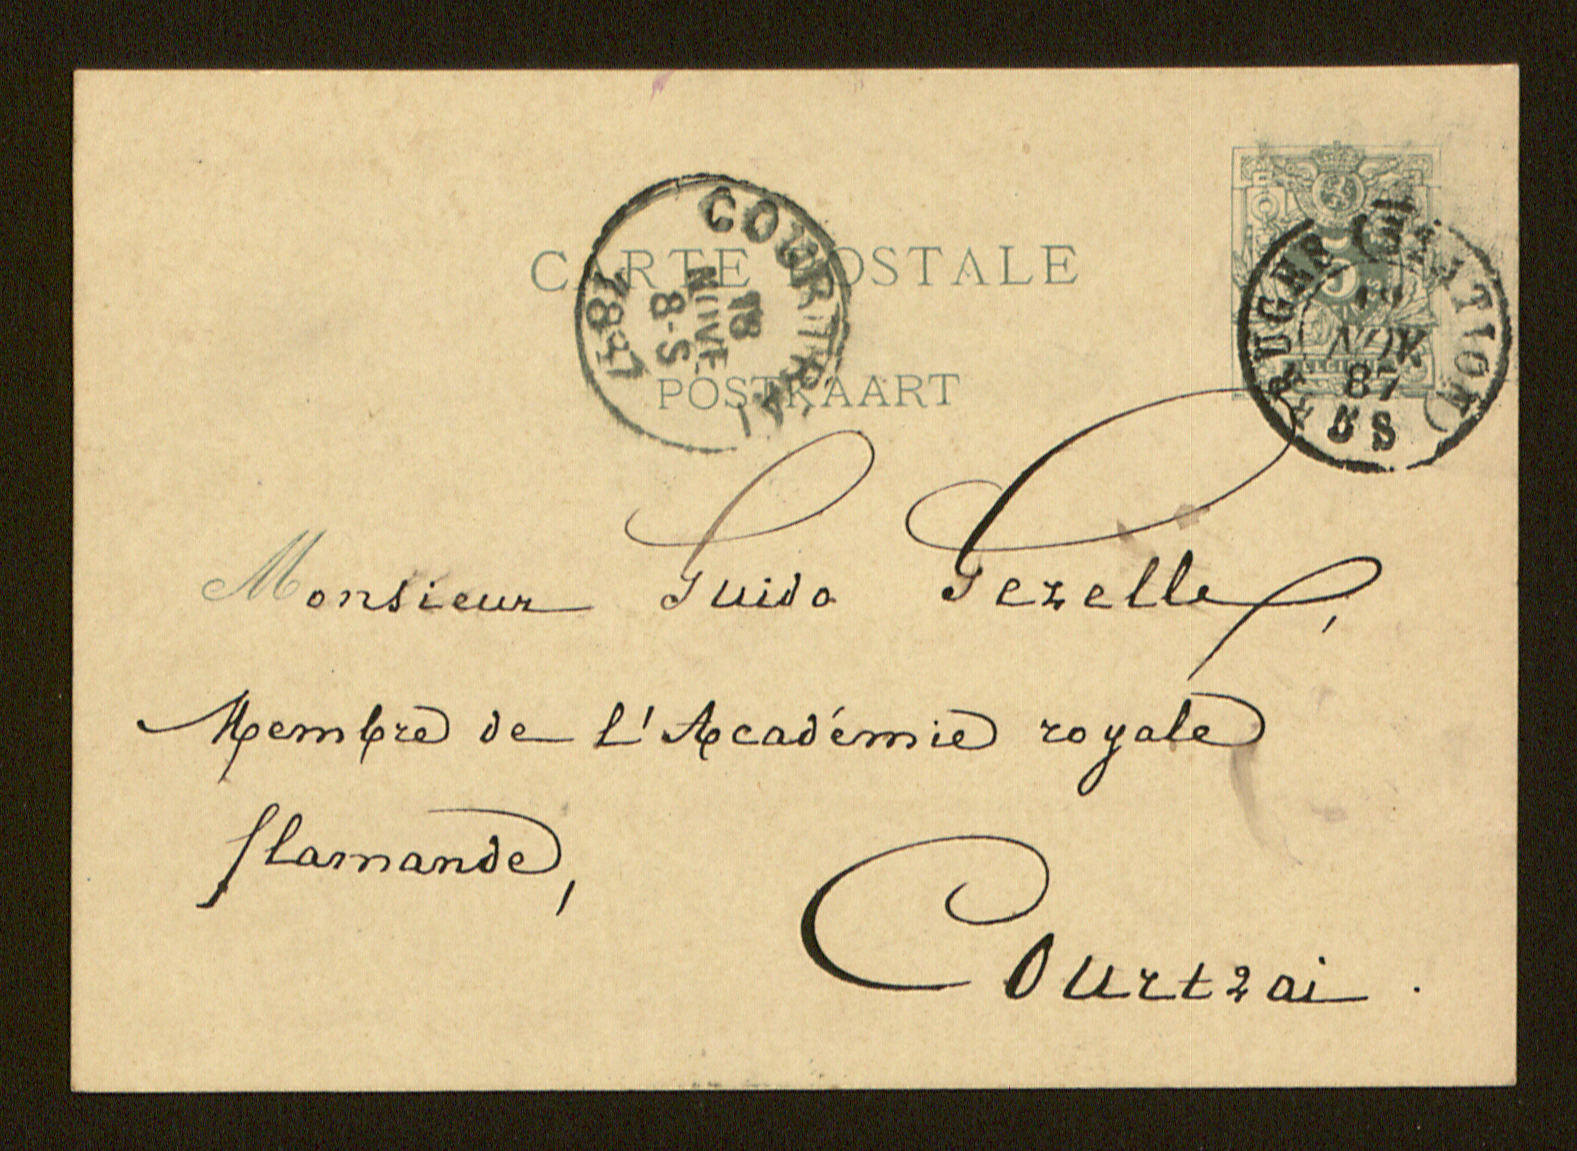 CARTE POSTALE
POSTKAART
COURTRAI
18
NOVE
8-S
1887
BRUGES (STATION)
18
NOV
87
5 S
Monsieur Guido Gezelle,
Membre de l'Académie royale
flamande,
Courtrai.